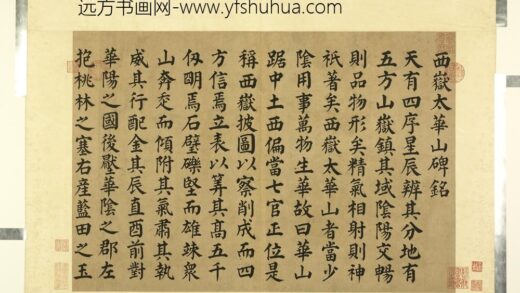 远方书画网-www.yfshuhua.com
西嶽太華山碑銘
天有四序星辰辨其分地有
五方山嶽鎮其域陰陽交暢
則品物形矣精氣相射則神
祇著矣西嶽太華山者當少
陰用事萬物生華故曰華山
踞中土西偏當七宿正位是
稱西嶽披圖以察削成而四
方信焉立表以筭其高五千
仭明焉石壁磥堅而雄竦衆
山奔走而傾附其氣肅其執
威其行配金其辰直酉前對
華陽之國後壓華陰之郡左
抱桃林之塞右産藍田之玉